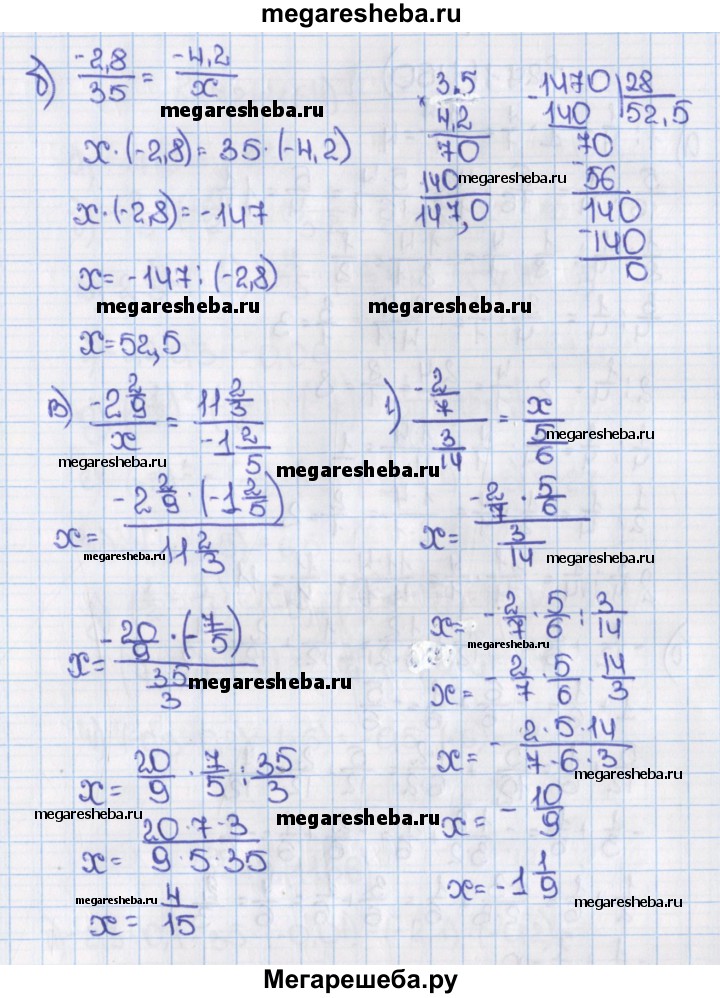 megaresheba.ru
б) -2,8/35 = -4,2/x
megaresheba.ru
x·(-2,8) = 35·(-4,2)
x·(-2,8) = -147
x = -147 : (-2,8)
megaresheba.ru
x = 52,5
× 3.5
4,2
70
140
megaresheba.ru
147,0
-1470 | 28
140 52,5
70
- 56
140
- 140
0
megaresheba.ru
в) -2 2/9 / x = 11 2/3 / -1 2/5
megaresheba.ru
megaresheba.ru
x = -2 2/9 · (-1 2/5) / 11 2/3
megaresheba.ru
x = -20/9 · (-7/5) / 35/3
megaresheba.ru
x = 20/9 · 7/5 : 35/3
megaresheba.ru
megaresheba.ru
x = 20·7·3 / 9·5·35
x = 4/15
г) -2/7 / 3/14 = x / 5/6
megaresheba.ru
x = -2/7 · 5/6 / 3/14
megaresheba.ru
x = - 2/7 · 5/6 : 3/14
megaresheba.ru
x = - 2/7 · 5/6 · 14/3
x = - 2·5·14 / 7·6·3
megaresheba.ru
x = - 10/9
x = -1 1/9
megaresheba.ru
Мегарешеба.ру